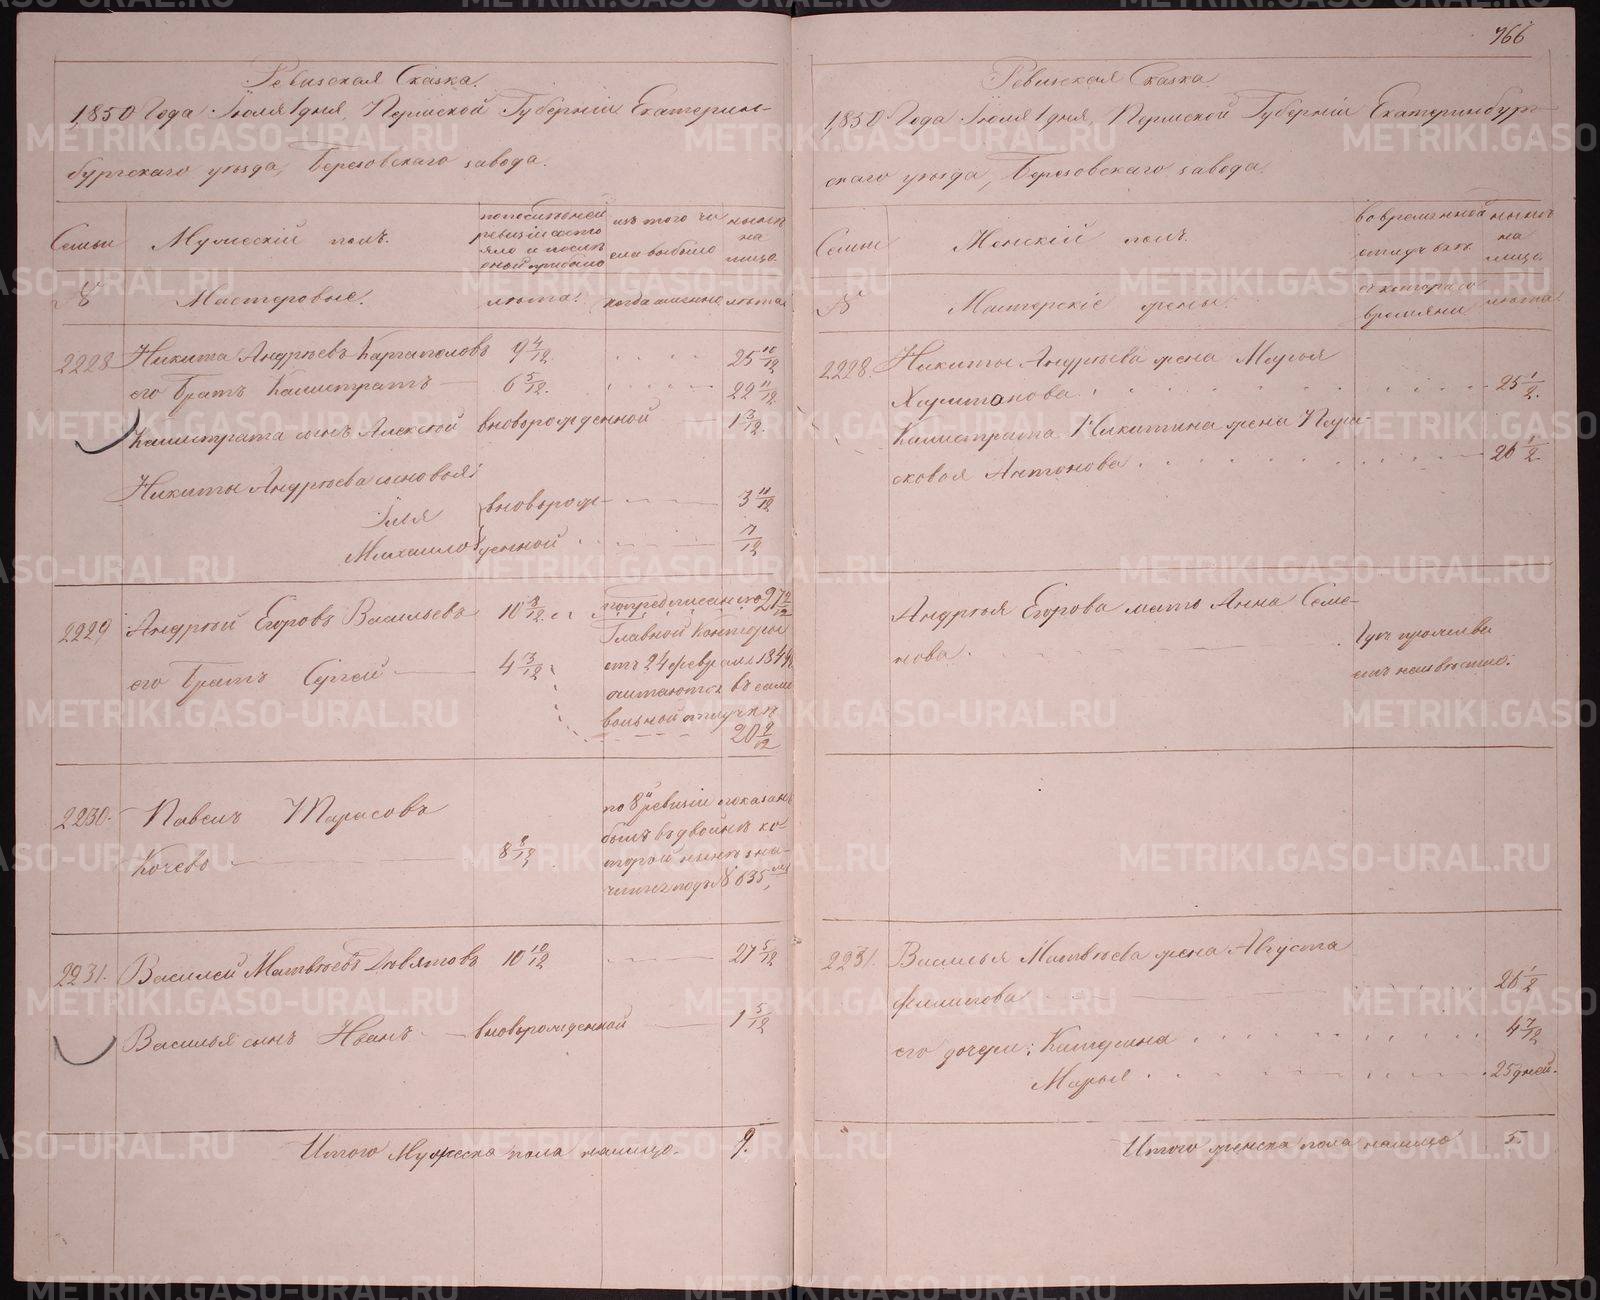 Ревизская Сказка.
1850 Года Іюля 1 дня, Пермской Губерніи Екатерин-
бургскаго уѣзда, Березовскаго завода.
Семьи
№
Мужескій полъ.
Мастеровые.
по послѣдней
ревизіи состо
яло и послѣ
оной прибыло
лѣта.
изъ того чи
сла выбыло
когда именно
нынѣ
на
лицо
лѣта
2228 Никита Андрѣевъ Каргаполовъ 9 4/12. 25 10/12
его Братъ Калистратъ 6 5/12. 22 11/12
Калистрата сынъ Алексѣй вновьрожденной 1 3/12.
Никиты Андрѣева сыновья:
Илья вновьрож- 3 11/12
Михаило денной 7/12
2229 Андрѣй Егоровъ Васильевъ 10 8/12. 27 2/12
его Братъ Сергѣй 4 3/12
по предписанію
Главной Конторы
отъ 24 февраля 1844
считаются въ само
вольной отлучкѣ
20 9/12
2230. Павелъ Тарасовъ
Кочевъ 8 8/12
по 8й ревизіи показанъ
былъ вдвойнѣ ко-
торой нынѣ зна-
чится подъ № 635
2231. Василей Матвѣевъ Девятовъ 10 10/12 27 5/12
Василья сынъ Иванъ вновьрожденной 1 5/12
Итого Мужеска пола налицо. 9.
766
Ревизская Сказка
1850 Года Іюля 1 дня, Пермской Губерніи Екатеринбург-
скаго уѣзда, Березовскаго завода.
Семьи
№
Женскій полъ.
Мастерскіе жены.
во временной
отлучкѣ
съ котораго
времяни
нынѣ
на
лицо
лѣта
2228. Никиты Андрѣева жена Марья
Харитонова. 25 1/2.
Калистрата Никитина жена Пара-
сковья Антонова 26 1/2
Андрѣя Егорова мать Анна Семе-
нова.
Гдѣ прожива
етъ неизвѣстно.
2231. Василья Матвѣева жена Августа
Филипова 26 1/2
его дочери: Катерина 4 7/12
Марья 25 дней.
Итого женска пола налицо 5.
METRIKI.GASO-URAL.RU